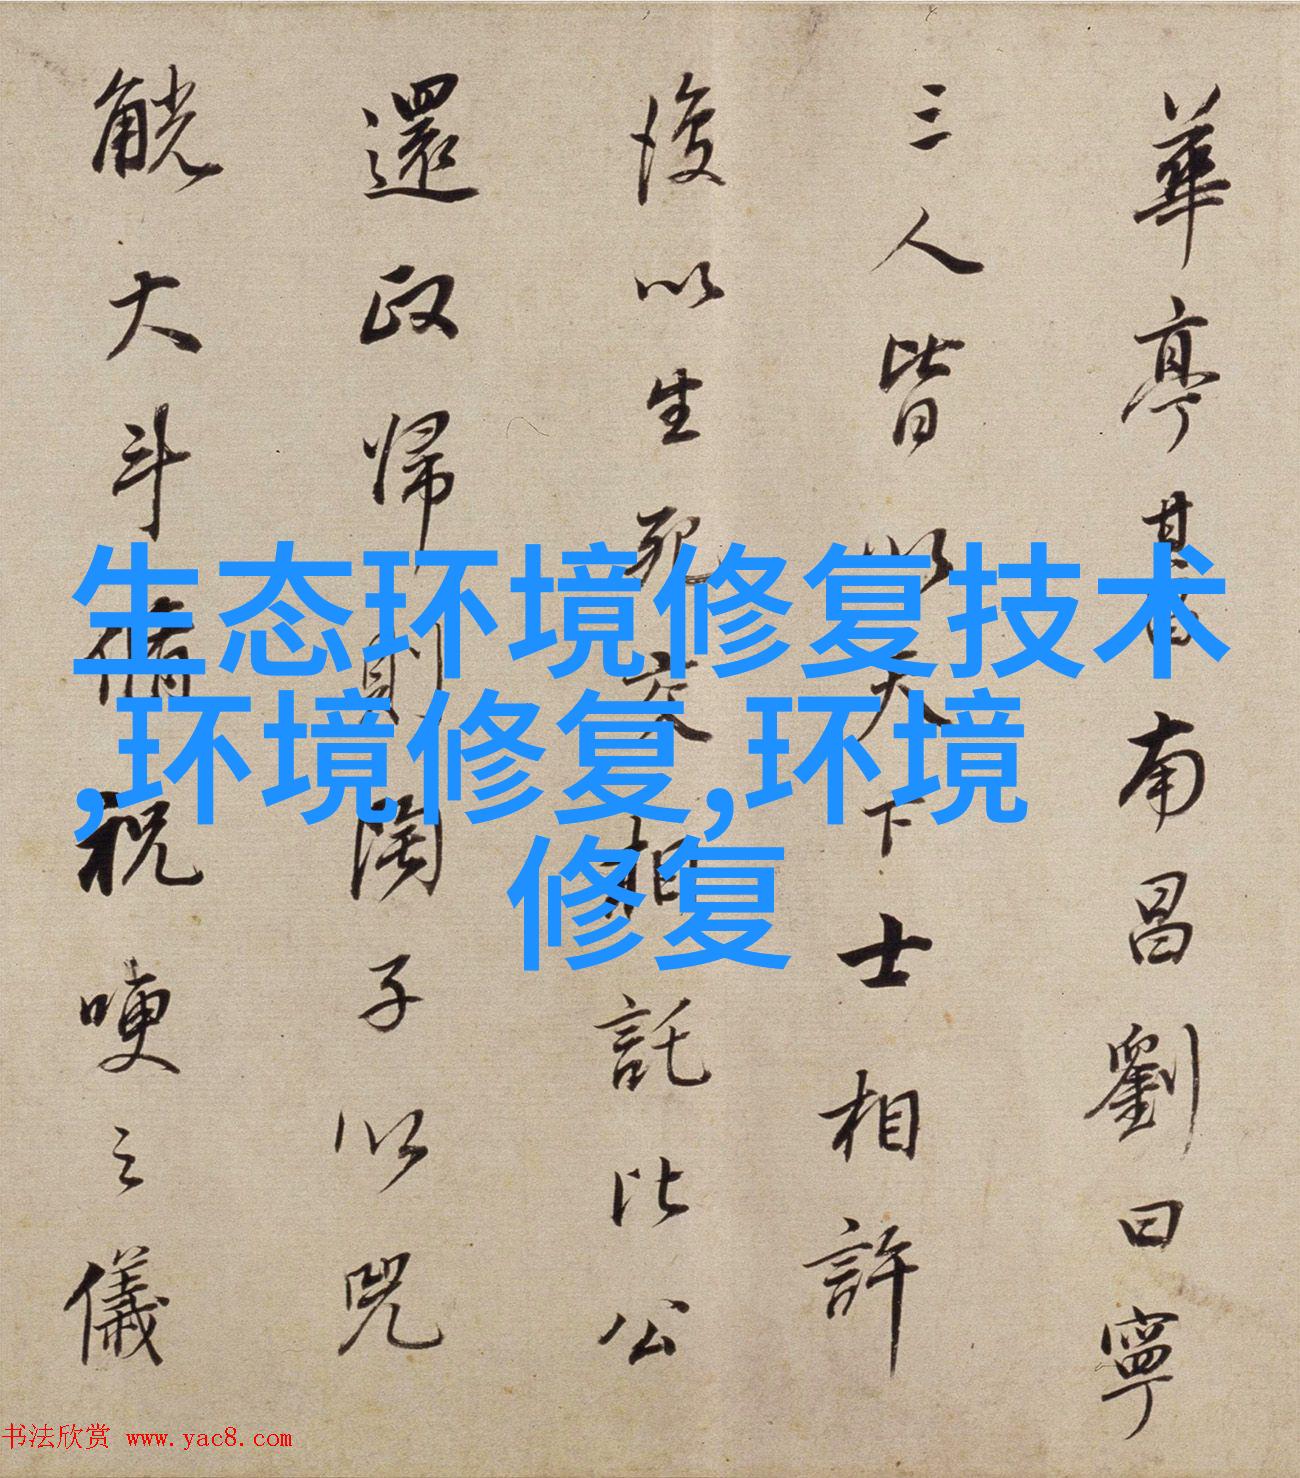 華亭南昌劉曰寧
三人皆以天下士相許
後以生死交相託比公
還政歸則陶子以兕
觥大斗脩祝哽之儀
生态环境修复技术
,环境修复,环境
修复
书法欣赏 www.yac8.com